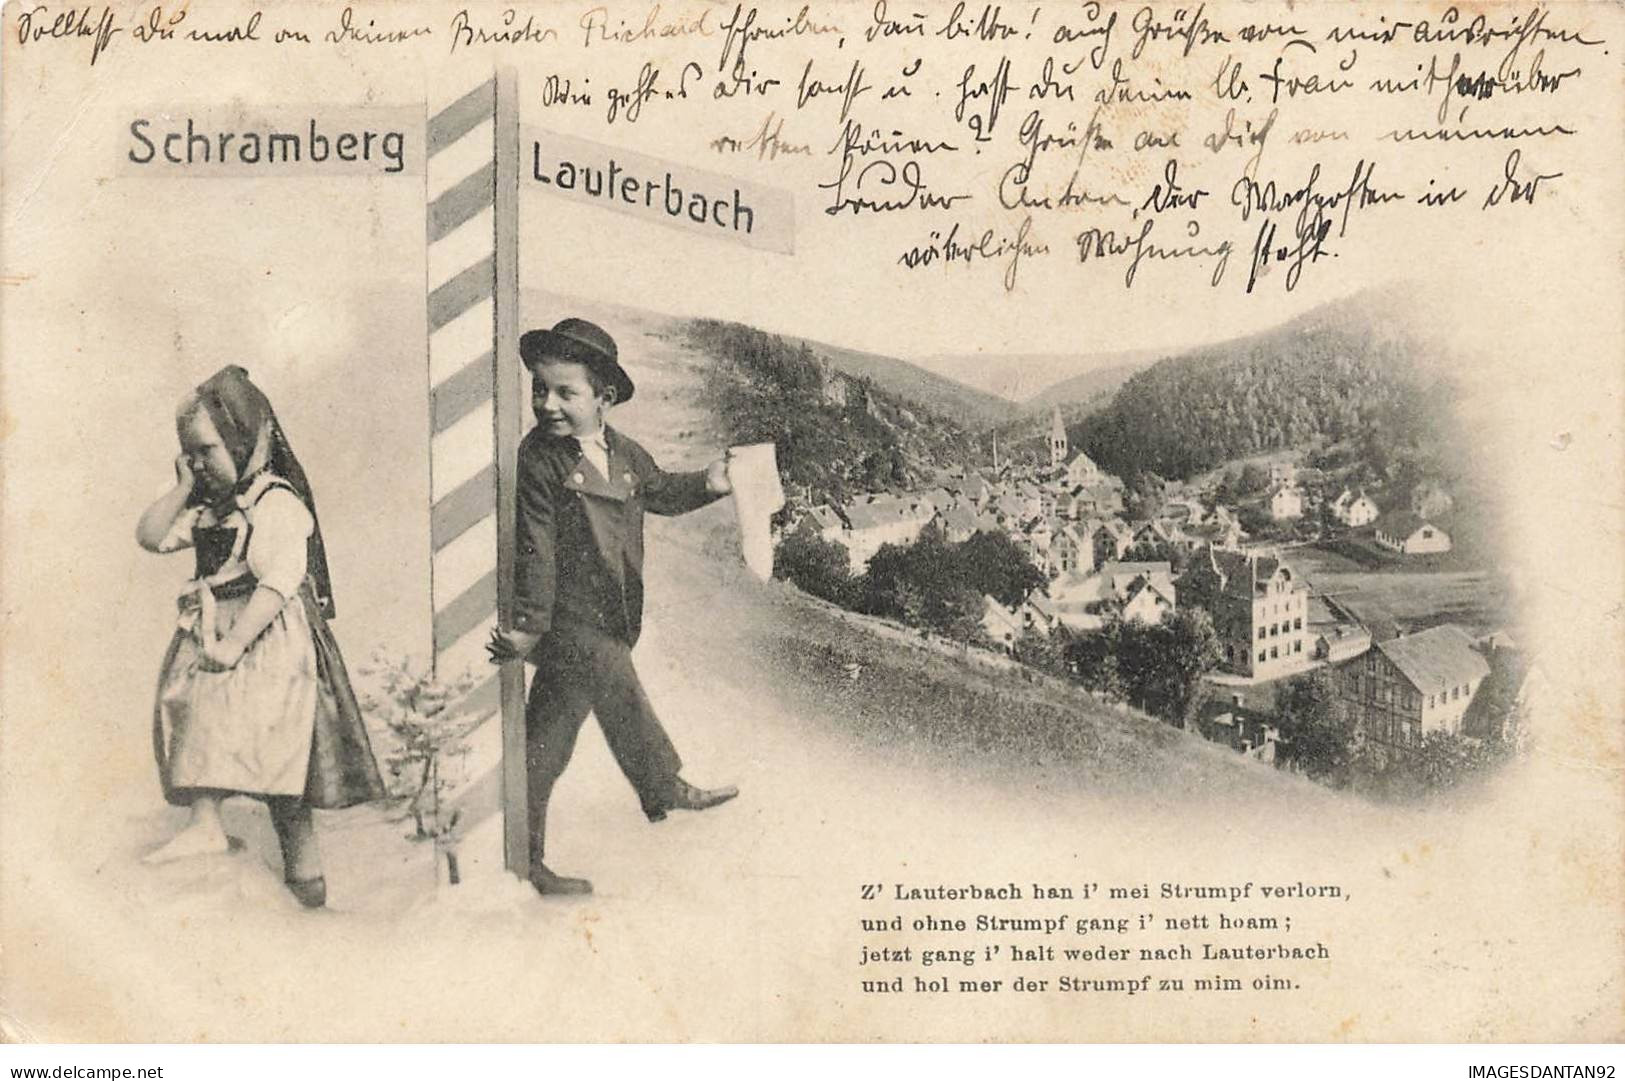 Solltest Du mal an Deinen Bruder Richard schreiben, dañ bitte! auch Grüße von mir ausrichten.
Wie geht es Dir sonst u. hast Du Deine lb. Frau mit herüber
retten köñen? Grüße an Dich von meinem
Bruder Anton, der Wachposten in der
väterlichen Wohnung steht.
Schramberg
Lauterbach
Z' Lauterbach han i' mei Strumpf verlorn,
und ohne Strumpf gang i' nett hoam;
jetzt gang i' halt weder nach Lauterbach
und hol mer der Strumpf zu mim oim.
delcampe.net
IMAGESDANTAN92